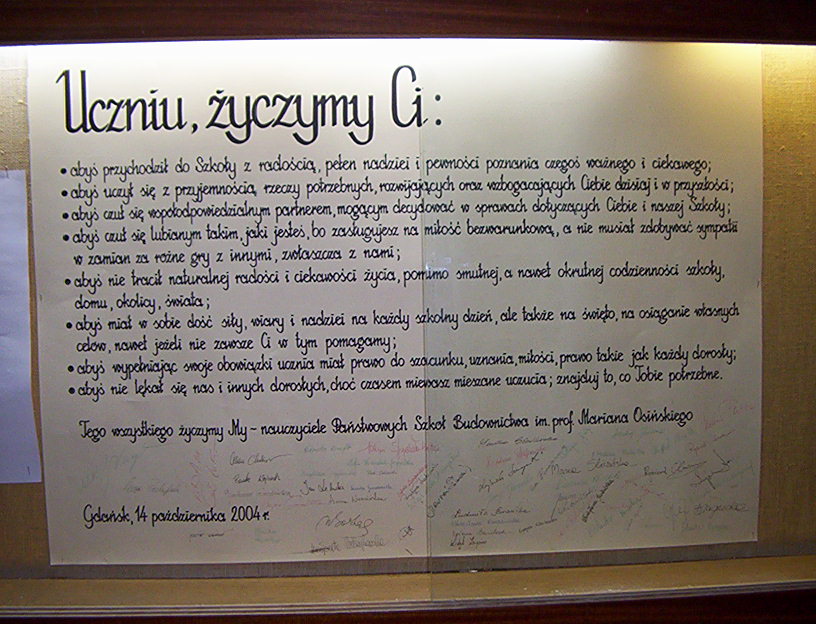 Uczniu, życzymy Ci:
• abyś przychodził do Szkoły z radością, pełen nadziei i pewności poznania czegoś ważnego i ciekawego;
• abyś uczył się z przyjemnością rzeczy potrzebnych, rozwijających oraz wzbogacających Ciebie dzisiaj i w przyszłości;
• abyś czuł się współodpowiedzialnym partnerem, mogącym decydować w sprawach dotyczących Ciebie i naszej Szkoły;
• abyś czuł się lubianym takim, jaki jesteś, bo zasługujesz na miłość bezwarunkową, a nie musiał zdobywać sympatii
w zamian za różne gry z innymi, zwłaszcza z nami;
• abyś nie tracił naturalnej radości i ciekawości życia, pomimo smutnej, a nawet okrutnej codzienności szkoły,
domu, okolicy, świata;
• abyś miał w sobie dość siły, wiary i nadziei na każdy szkolny dzień, ale także na święto, na osiąganie własnych
celów, nawet jeżeli nie zawsze Ci w tym pomagamy;
• abyś wypełniając swoje obowiązki ucznia miał prawo do szacunku, uznania, miłości, prawo takie jak każdy dorosły;
• abyś nie lękał się nas i innych dorosłych, choć czasem miewasz mieszane uczucia; znajduj to, co Tobie potrzebne.
Tego wszystkiego życzymy My - nauczyciele Państwowych Szkół Budownictwa im. prof. Mariana Osińskiego
Gdańsk, 14 października 2004 r.